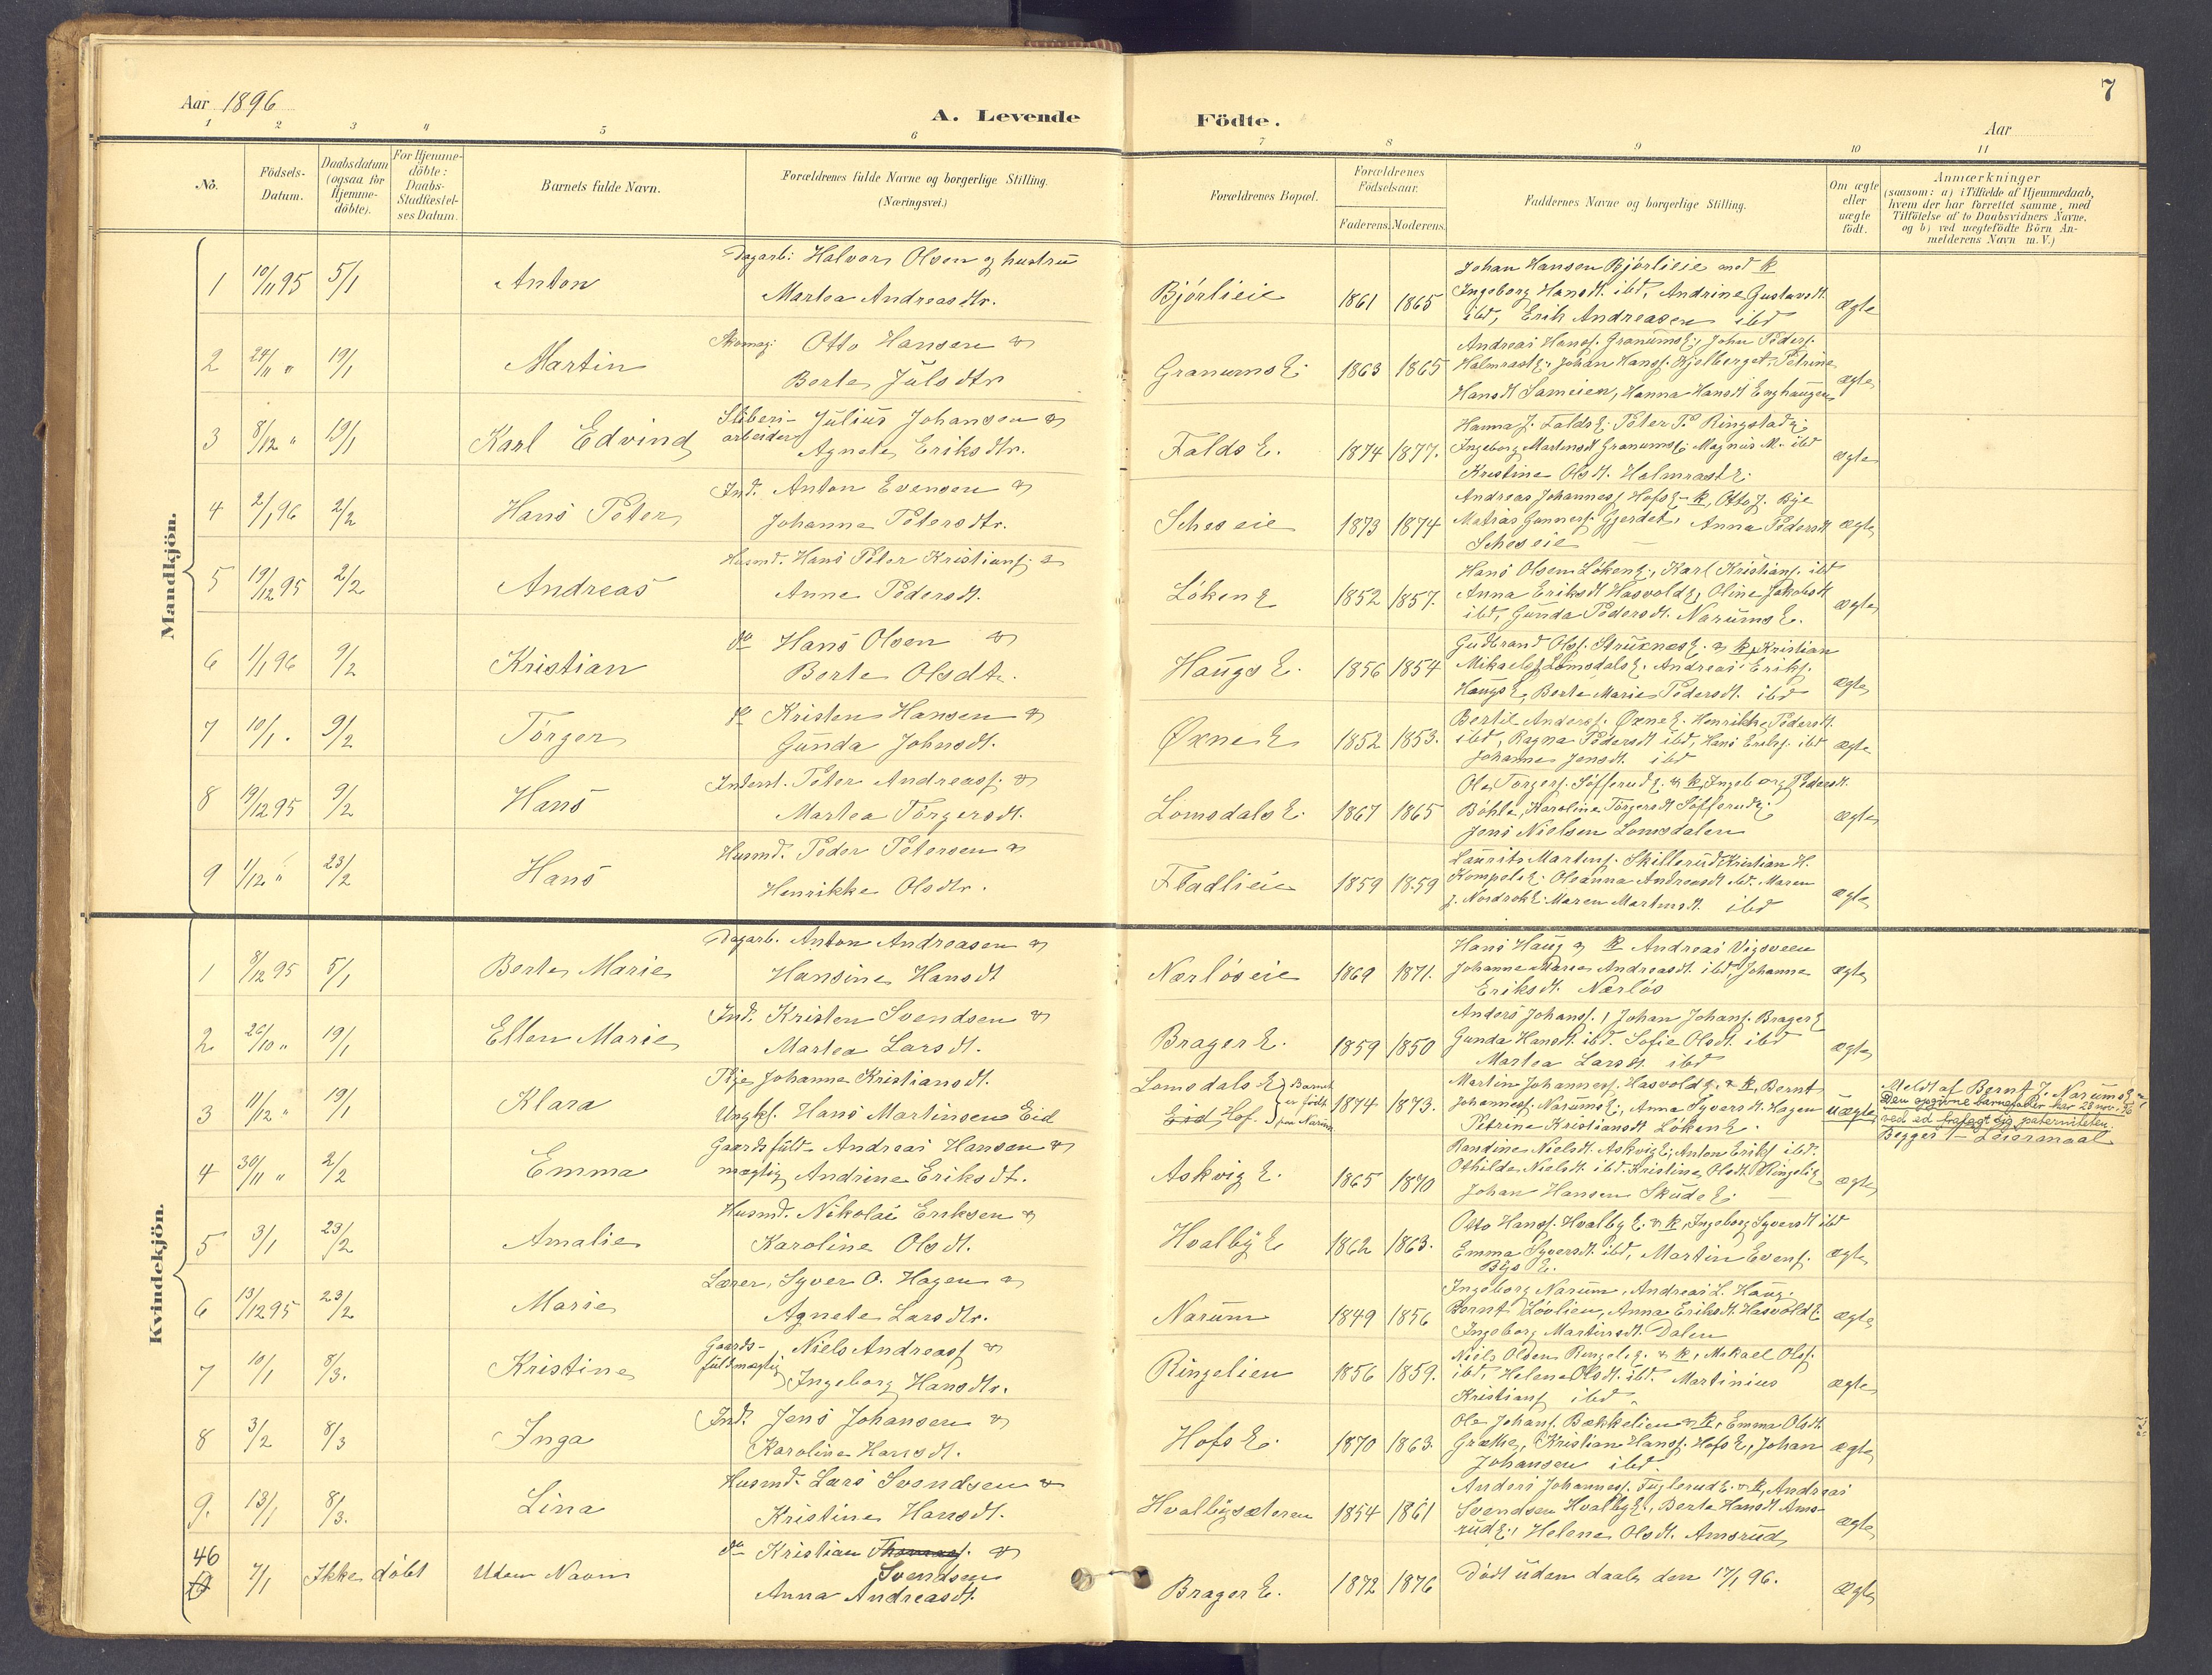 7
Aar 1896
A. Levende Födte.
Aar
1 2 3 4 5 6 7 8 9 10 11
No.
Födsels-Datum.
Daabsdatum (ogsaa for Hjemme-döbte).
For Hjemme-döbte: Daabs-Stadfæstel-ses Datum.
Barnets fulde Navn.
Forældrenes fulde Navne og borgerlige Stilling.
(Næringsvei.)
Forældrenes Bopæl.
Forældrenes Födselsaar.
Faderens. Moderens.
Faddernes Navne og borgerlige Stilling.
Om ægte eller uægte födt.
Anmærkninger
(saasom: a) i Tilfælde af Hjemmedaab, hvem der har forrettet samme, med Tilföielse af to Daabsvidners Navne, og b) ved uægtefödte Börn An-melderens Navn m.V.)
Mandkjön.
1 10/11 95 5/1 Anton
Dagarb: Halvor Olsen og hustru
Martea Andreasdtr.
Bjørlieie 1861 1865
Johan Hansen Bjørlieie med K
Ingeborg Hansdt. ibd, Andrine Gustavsdt.
ibd, Erik Andreasen ibd
ægte
2 24/11 " 19/1 Martin
Skomag: Otto Hansen &
Berte Julsdtr
Granums E. 1863 1865
Andreas Hansf. GranumsE, John Peders.
HalmrastE, Johan Hansf. Kjelberget, Petrine
Hansdt Sameien, Hanna Hansdt Enghaugen
ægte
3 8/12 " 19/1 Karl Edvind
Sliberi-arbeider Julius Johansen &
Agnete Eriksdtr.
Falds E. 1874 1877.
Hanna J. FaldsE. Peter P. RingstadE
Ingeborg Martinsdt GranumsE. Magnus M. ibd
Kristine Olsdt. HalmrastE.
ægte
4 2/1 96 2/2 Hans Peter
Ind. Anton Evensen &
Johanne Petersdtr.
Scheseie 1873 1874
Andreas Johannesf HofsE - K, Otto J. Bye
Matias Gunnersf. Gjerdet, Anna Pedersdt
Scheseie
ægte
5 19/12 95 2/2 Andreas
Husmd. Hans Peter Kristiansf. &
Anne Pedersdt.
Løken E 1852 1857.
Hans Olsen LøkenE., Karl Kristiansf. ibd
Anna Eriksdt HasvoldE, Oline Jakobsdt
ibd, Gunda Pedersdt. NarumsE.
ægte
6 1/1 96 9/2 Kristian
do Hans Olsen &
Berte Olsdtr.
Haugs E. 1856 1854
Gudbrand Olsf. StruknesE. & K, Kristian
Mikaelsf LomsdalsE. Andreas Eriksf.
HaugsE, Berte Marie Pedersdt. ibd
ægte
7 10/1 . 9/2 Törger
do Kristen Hansen &
Gunda Johnsdt.
Øxne E 1852 1853.
Bertil Andersf. ØxneE. Henrikke Pedersdt.
ibd, Ragna Pedersdt ibd, Hans Eriksf. ibd
Johanne Jensdt ibd
ægte
8 19/12 95 9/2 Hans
Inderst. Peter Andreasf. &
Martea Törgersdt.
Lomsdals E. 1867 1865
Ole Torgersf. SöfferudE. & K, Ingeborg Pedersdt.
Bøhle, Karoline Törgersdt SöfferudE.
Jens Nielsen Lomsdalen
ægte
9 1/12 " 23/2 Hans
Husmd. Peder Petersen &
Henrikke Olsdtr.
Fladlieie 1859 1859
Laurits Martinsf. Skillerud, Kristian H.
KompelsE. Oleanna Andreasdt ibd. Maren
J. NordrokE. Maren Martinsdt. ibd
ægte
Kvindekjön.
1 8/12 95 5/1 Berte Marie
Dagarb. Anton Andreasen &
Hansine Hansdt
Nærløseie 1869 1871.
Hans Haug & K Andreas Vigsveen
Johanne Marie Andreasdt. ibd, Johanne
Eriksdt. Nærløs
ægte
2 26/10 " 19/1 Ellen Marie
Ind. Kristen Svendsen &
Martea Larsdt.
Brager E. 1859 1850
Anders Johansf., Johan Johansf. BragerE
Gunda Hansdt ibd. Sofie Olsdt. ibd
Martea Larsdt. ibd
ægte
3 11/12 " 19/1 Klara
Pige Johanne Kristiansdt.
Ungkf. Hans Martinsen Eid
Lomsdals E Barnet er født paa Narum
Eid Hof. 1874 1873.
Martin Johannesf. HasvoldE. & K, Bernt
Johannesf. NarumsE., Anna Syversdt. Hagen
Petrine Kristiansdt LøkenE.
uægte
Meldt af Bernt J. NarumsE
Den opgivne barnefader har 28 nov. 96
ved ed fralagt sig paterniteten.
Begges 1 - Leiermaal
4 30/11 " 2/2 Emma
Gaardsfuld-mægtig Andreas Hansen &
Andrine Eriksdt.
Askvig E. 1865 1870
Randine Nielsdt. AskvigE, Anton Eriksf ibd.
Othilde Nielsdt. ibd. Kristine Olsdt. RingeliE
Johan Hansen SkudeE.
ægte
5 3/1 23/2 Amalie
Husmd. Nikolai Eriksen &
Karoline Olsdt.
Hvalby E 1862 1863.
Otto Hansf. HvalbyE. & K, Ingeborg Syversdt ibd
Emma Syversdt. ibd, Martin Evensf.
Bys E.
ægte
6 13/12 95 23/2 Marie
Lærer, Syver O. Hagen &
Agnete Larsdtr.
Narum 1849 1856
Ingeborg Narum, Andreas L. Haug.
Bernt Løvlien, Anna Eriksdt. HasvoldE.
Ingeborg Martinsdt. Dalen
ægte
7 10/1 8/3. Kristine
Gaards-fuldmægtig Niels Andreasf &
Ingeborg Hansdtr.
Ringelien 1856 1859.
Niels Olsen RingeliE. & K, Mikael Olsf.
ibd, Helene Olsdt. ibd. Martinius
Kristiansf ibd.
ægte
8 3/2 8/3 Inga
Ind. Jens Johansen &
Karoline Hansdt.
Hofs E. 1870 1863.
Ole Johansf. Bækkelien & K, Emma Olsdt.
Grætte, Kristian Hansf. HofsE, Johan
Johansen ibd.
ægte
9. 13/1 8/3. Lina
Husmd. Lars Svendsen &
Kristine Hansdt.
Hvalbysæteren 1854 1861
Anders Johannesf. FuglerudE. & K, Andreas
Svendsen HvalbyE., Berte Hansdt Ams-
rudE., Helene Olsdt. Amsrud
ægte
46
10 7/1 Ikke döbt Uden Navn
do Kristian Thomasf. &
Svendsen
Anna Andreasdt.
Brager E. 1872 1876
Dödt uden daab den 17/1 96.
ægte